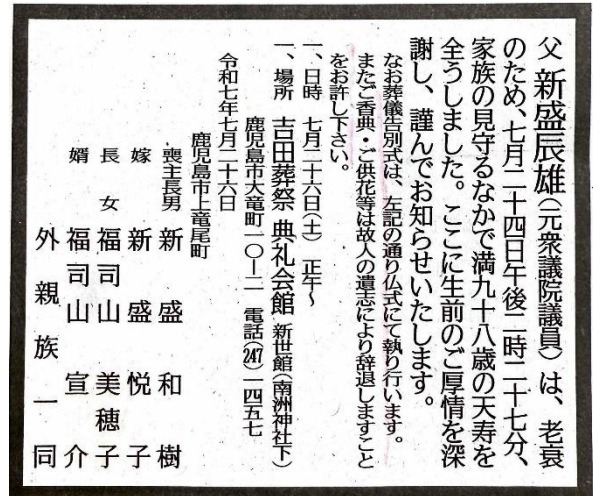 父 新盛辰雄(元衆議院議員)は、老衰
のため、七月二十四日午後二時二十七分、
家族の見守るなかで満九十八歳の天寿を
全うしました。ここに生前のご厚情を深
謝し、謹んでお知らせいたします。
なお葬儀告別式は、左記の通り仏式にて執り行います。
またご香典・ご供花等は故人の遺志により辞退しますこと
をお許し下さい。
一、日時 七月二十六日(土) 正午〜
一、場所 吉田葬祭 典礼会館 新世館(南洲神社下)
鹿児島市大竜町一〇ー二 電話(247)一四五七
令和七年七月二十六日
鹿児島市上竜尾町
喪主長男 新盛 和樹
嫁 新盛 悦子
長女 福司山 美穂子
婿 福司山 宣介
外 親族一同